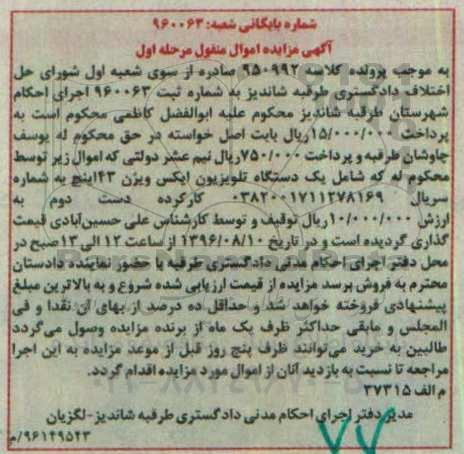 شماره بایگانی شعبه: ۹۶۰۰۶۳
آگهی مزایده اموال منقول مرحله اول
به موجب پرونده کلاسه ۹۵۰۹۹۲ صادره از سوی شعبه اول شورای حل
اختلاف دادگستری طرقبه شاندیز به شماره ثبت ۹۶۰۰۶۳ اجرای احکام
شهرستان طرقبه شاندیز محکوم علیه ابوالفضل کاظمی محکوم است به
پرداخت ۱۵/۰۰۰/۰۰۰ریال بابت اصل خواسته در حق محکوم له یوسف
چاوشان طرقبه و پرداخت ۷۵۰/۰۰۰ریال نیم عشر دولتی که اموال زیر توسط
محکوم له که شامل یک دستگاه تلویزیون ایکس ویژن ۴۳اینچ به شماره
سریال ۰۳۸۲۰۰۱۷۱۱۲۷۸۱۶۹ کارکرده دست دوم به
ارزش ۱۰/۰۰۰/۰۰۰ریال توقیف و توسط کارشناس علی حسین‌آبادی قیمت
گذاری گردیده است و در تاریخ ۱۳۹۶/۰۸/۱۰ از ساعت ۱۲ الی ۱۳صبح در
محل دفتر اجرای احکام مدنی دادگستری طرقبه با حضور نماینده دادستان
محترم به فروش برسد مزایده از قیمت ارزیابی شده شروع و به بالاترین مبلغ
پیشنهادی فروخته خواهد شد و حداقل ده درصد از بهای آن نقدا و فی
المجلس و مابقی حداکثر ظرف یک ماه از برنده مزایده وصول می‌گردد
طالبین به خرید می‌توانند ظرف پنج روز قبل از موعد مزایده به این اجرا
مراجعه تا نسبت به بازدید آنان از اموال مورد مزایده اقدام گردد.
م الف ۳۷۳۱۵
مدیر دفتر اجرای احکام مدنی دادگستری طرقبه شاندیز-لگزیان
۹۶۱۴۹۵۴۳/م
۷۷